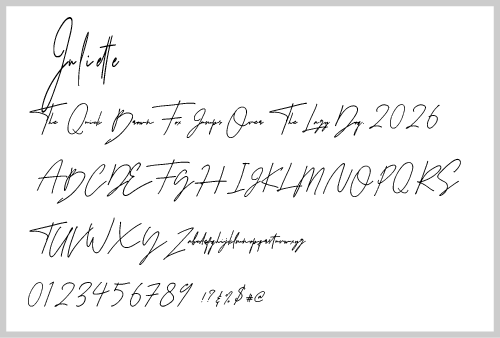 Juliette
The Quick Brown Fox Jumps Over The Lazy Dog. 2026
ABCDEFGHIJKLMNOPQRS
TUVWXYZabcdefghijklmnopqrstuvwxyz
0123456789 !?&%$#@